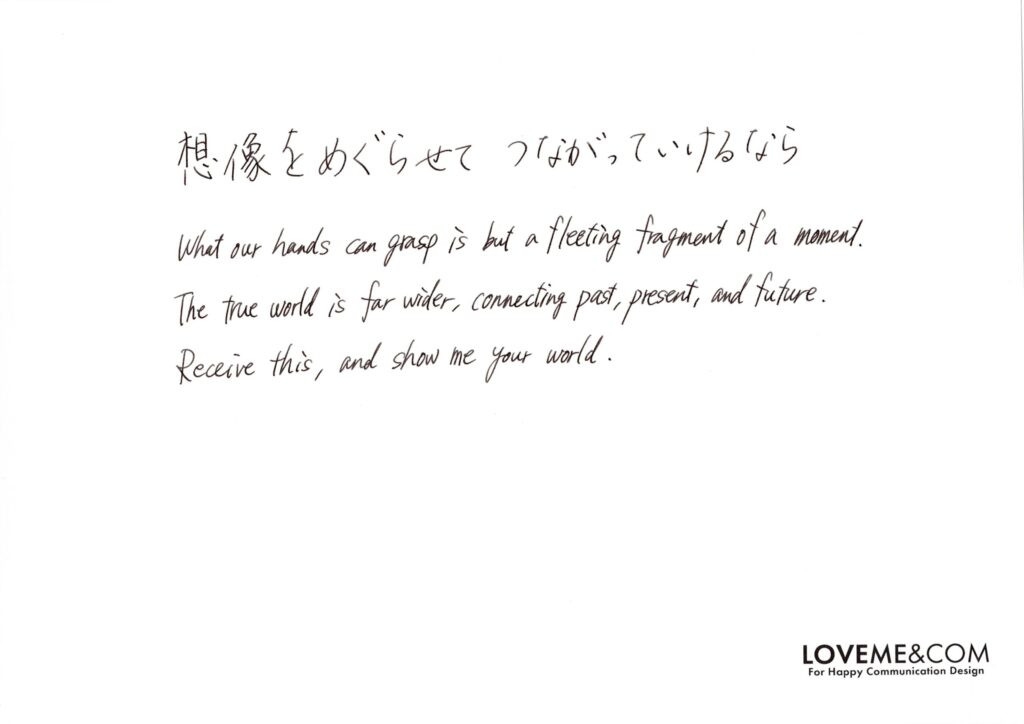 想像をめぐらせて つながっていけるなら
What our hands can grasp is but a fleeting fragment of a moment.
The true world is far wider, connecting past, present, and future.
Receive this, and show me your world.
LOVEME&COM
For Happy Communication Design